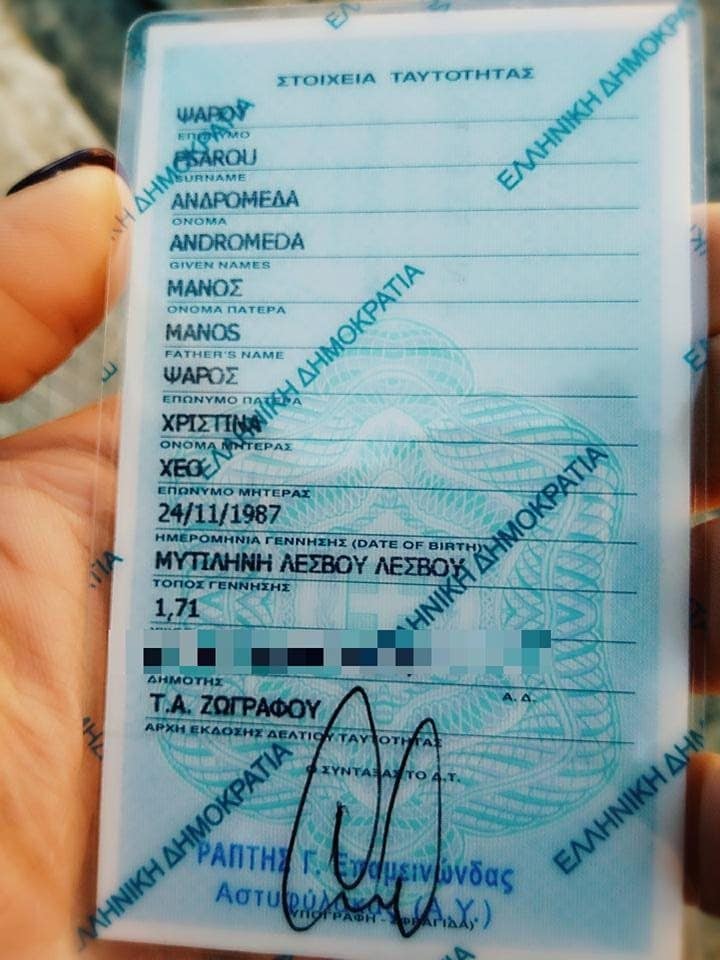 ΣΤΟΙΧΕΙΑ ΤΑΥΤΟΤΗΤΑΣ
ΨΑΡΟΥ
ΕΠΩΝΥΜΟ
PSAROU
SURNAME
ΑΝΔΡΟΜΕΔΑ
ΟΝΟΜΑ
ANDROMEDA
GIVEN NAMES
ΜΑΝΟΣ
ΟΝΟΜΑ ΠΑΤΕΡΑ
MANOS
FATHER'S NAME
ΨΑΡΟΣ
ΕΠΩΝΥΜΟ ΠΑΤΕΡΑ
ΧΡΙΣΤΙΝΑ
ΟΝΟΜΑ ΜΗΤΕΡΑΣ
ΧΕΟ
ΕΠΩΝΥΜΟ ΜΗΤΕΡΑΣ
24/11/1987
ΗΜΕΡΟΜΗΝΙΑ ΓΕΝΝΗΣΗΣ (DATE OF BIRTH)
ΜΥΤΙΛΗΝΗ ΛΕΣΒΟΥ ΛΕΣΒΟΥ
ΤΟΠΟΣ ΓΕΝΝΗΣΗΣ
1,71
ΔΗΜΟΤΗΣ Α.Δ.
Τ.Α. ΖΩΓΡΑΦΟΥ
ΑΡΧΗ ΕΚΔΟΣΗΣ ΔΕΛΤΙΟΥ ΤΑΥΤΟΤΗΤΑΣ
Ο ΣΥΝΤΑΞΑΣ ΤΟ Δ.Τ.
ΡΑΠΤΗΣ Γ. Επαμεινώνδας
Αστυφύλακας (Α.Υ.)
ΥΠΟΓΡΑΦΗ - ΣΦΡΑΓΙΔΑ)
ΕΛΛΗΝΙΚΗ ΔΗΜΟΚΡΑΤΙΑ
ΕΛΛΗΝΙΚΗ ΔΗΜΟΚΡΑΤΙΑ
ΕΛΛΗΝΙΚΗ ΔΗΜΟΚΡΑΤΙΑ
ΕΛΛΗΝΙΚΗ ΔΗΜΟΚΡΑΤΙΑ